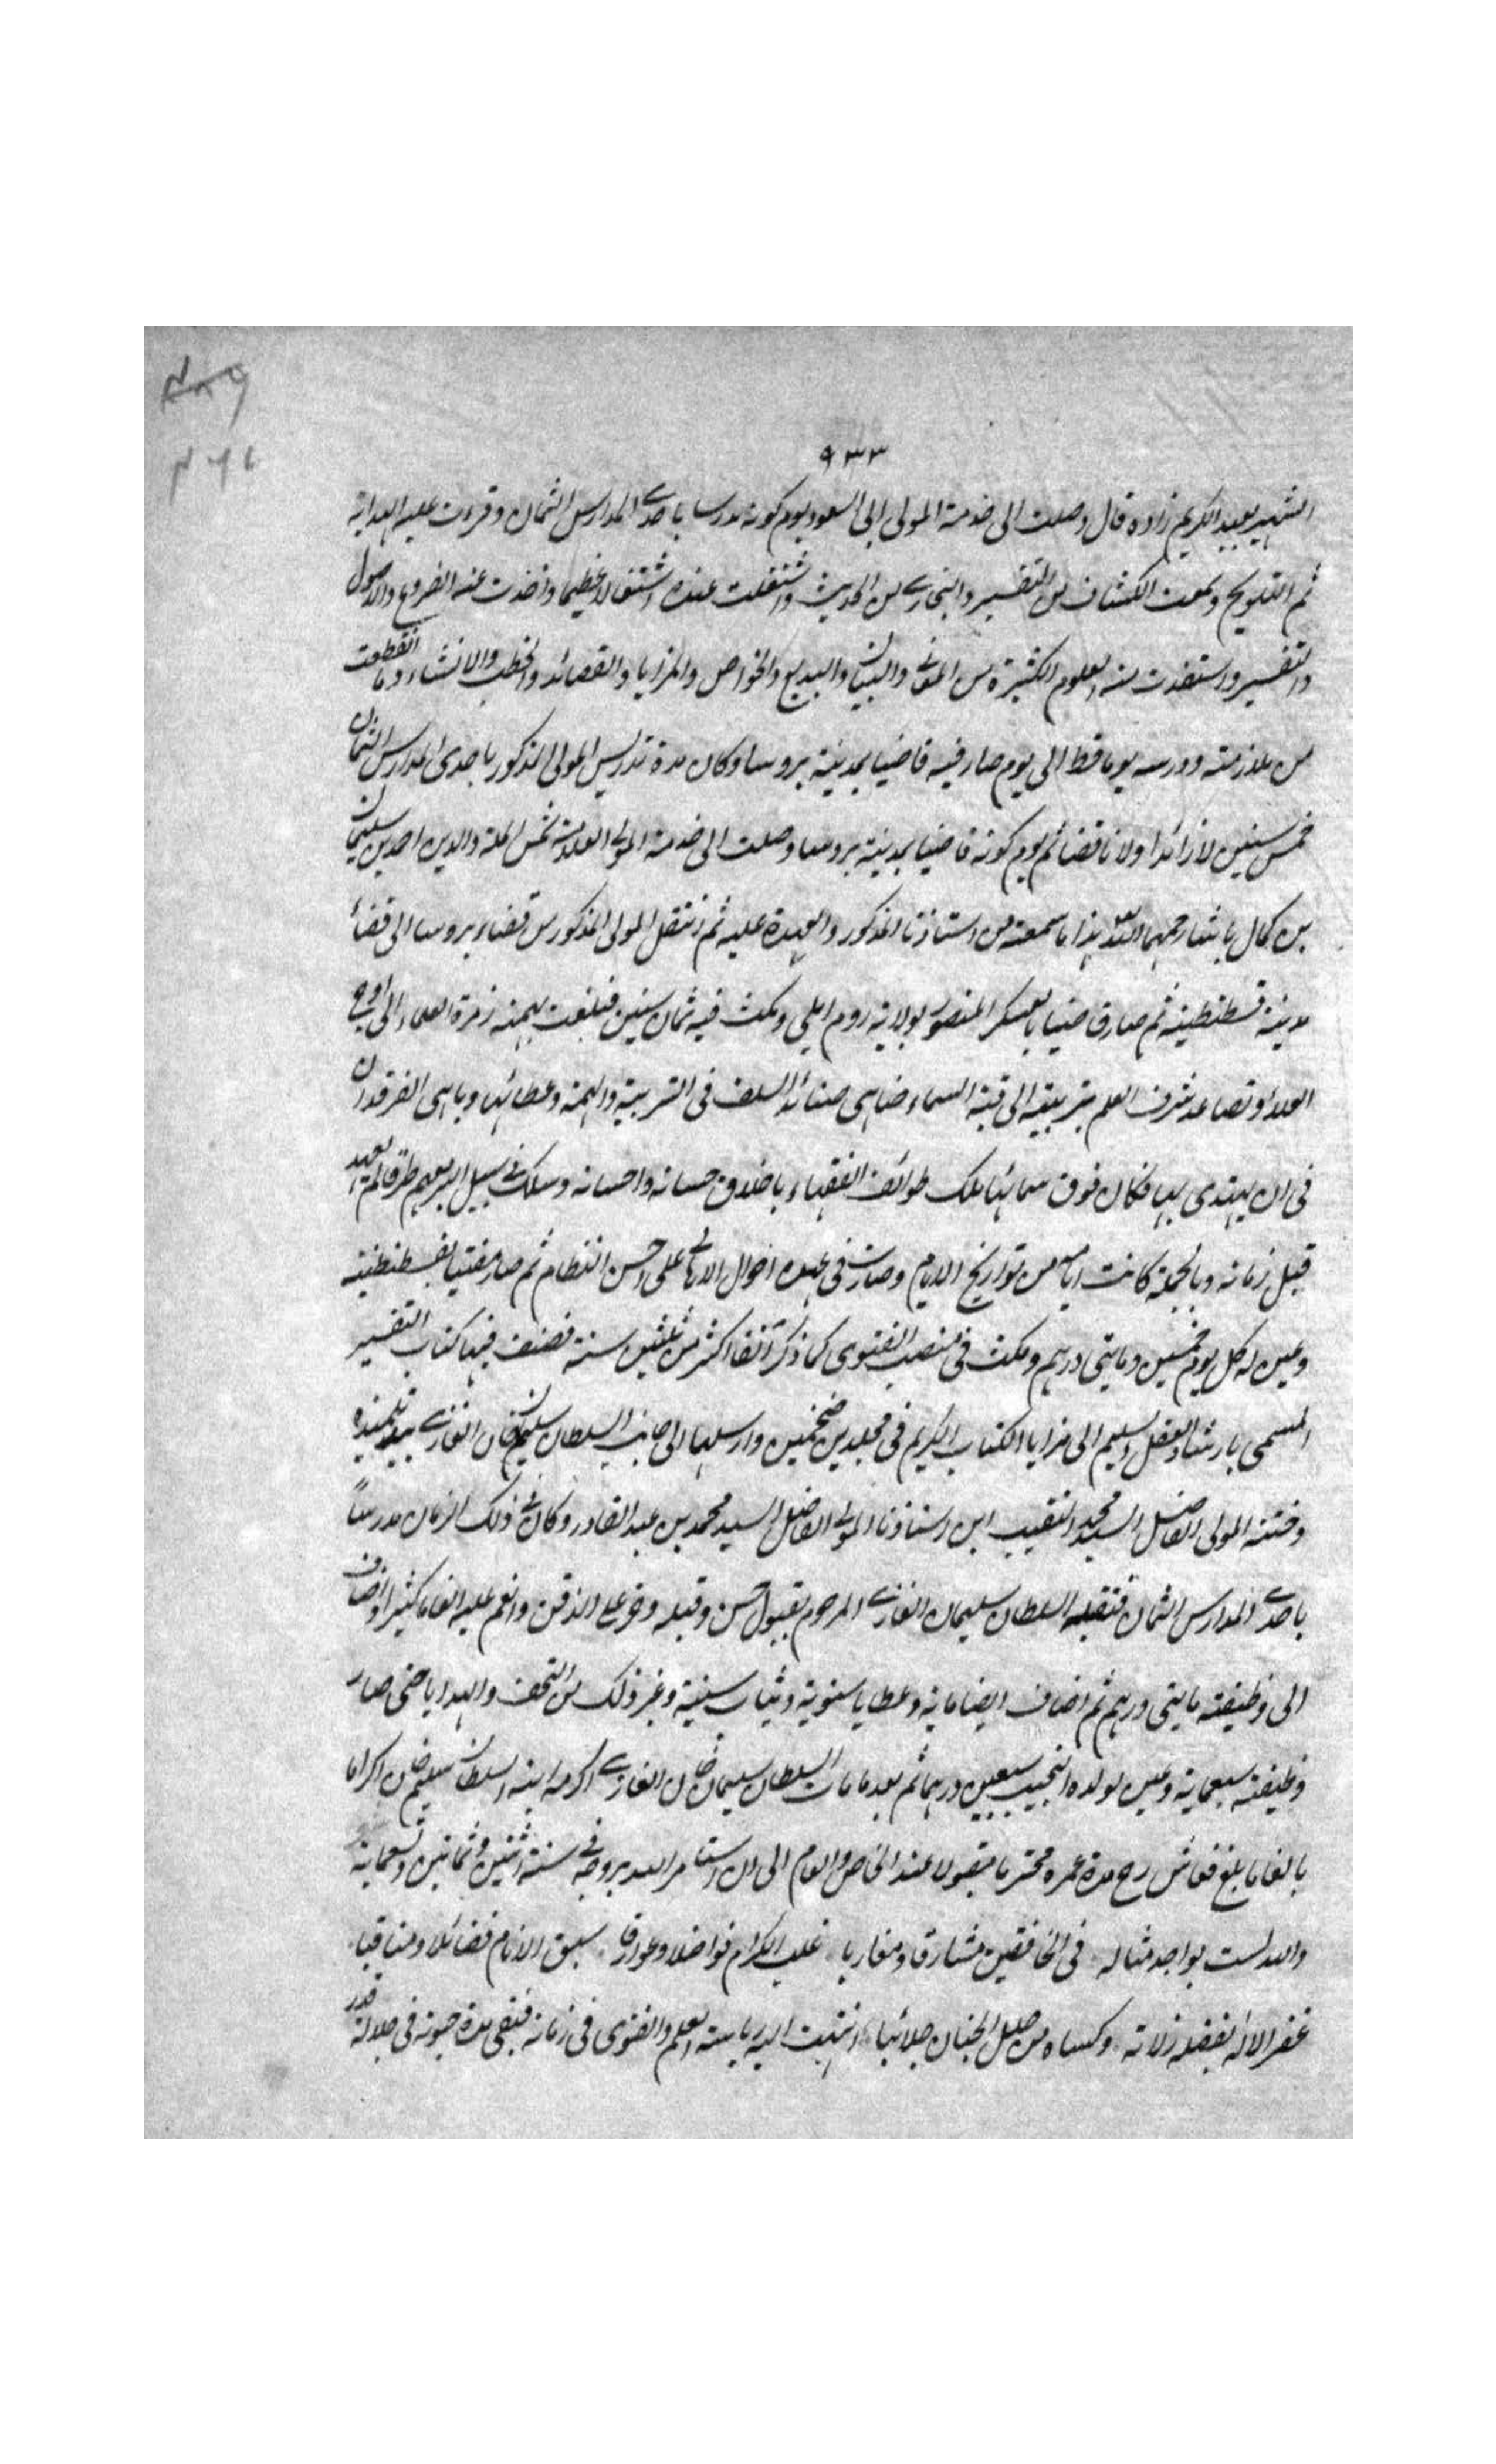 ٩٣٣
الشهير بعبد الكريم زاده قال وصلت الى خدمة المولى ابى السعود يوم كونه مدرسا باحدى المدارس الثمان وقرءت عليه الهداية
ثم التلويح وسمعت الكشاف من التفسير والبخارى من الحديث واشتغلت عنده اشتغالا عظيما واخذت عنه الفروع والاصول
والتفسير واستفدت منه العلوم الكثيرة من المعانى والبيان والبديع والخواص والمزايا والقصائد والخطب والانشاء وما انقطعت
من ملازمته ودرسه يوما قط الى يوم صار فيه قاضيا بمدينة بروسا وكان مدة تدريس المولى المذكور باحدى المدارس الثمان
خمس سنين لا زائدا ولا ناقصا ثم يوم كونه قاضيا بمدينة بروسا وصلت الى خدمة المولى العلامة شمس الملة والدين احمد بن سليمان
بن كمال باشا رحمهما الله هذا ما سمعته من استاذنا المذكور والعهدة عليه ثم انتقل المولى المذكور من قضاء بروسا الى قضاء
مدينة قسطنطينية ثم صار قاضيا بالعسكر المنصور بولاية روم ايلى ومكث فيه ثمان سنين فبلغت بهمته زمرة العلماء الى اوج
العلاء وتصاعد شرف العلم بتربيته الى قبة السماء ضاهى صناديد السلف فى التربية والهمة وعطائها وباهى الفرقدان
فى ان يهتدى بها فكان فوق سمائها ملك طوائف الفقهاء باخلاق حسانه واحسانه وسلك فى سبيل البر معهم طرقا لم يعهد
قبل زمانه وبالجملة كانت ايامه من تواريخ الايام وصارت فى عهده احوال الاهالى على احسن انتظام ثم صار مفتيا بقسطنطينية
وعين له كل يوم خمسين ومايتى درهم ومكث فى منصب الفتوى كما ذكر آنفا اكثر من ثلثين سنة فصنف فيها كتاب التفسير
المسمى بارشاد العقل السليم الى مزايا الكتاب الكريم فى مجلدين ضخمين وارسلها الى جانب السلطان سليمان خان الغازى بيد تلميذه
وختنه المولى الفاضل السيد محمد النقيب ابن استاذنا المولى الفاضل السيد محمد بن عبد القادر وكان فى ذلك الزمان مدرسا
باحدى المدارس الثمان فتقبله السلطان سليمان الغازى المرحوم بقبول حسن وقبله وخر على الذقن وانعم عليه انعاما كثيرا واضاف
الى وظيفته مايتى درهم ثم اضاف ايضا ماية وعطايا سنوية وثياب سنية وغير ذلك من التحف والهدايا حتى صار
وظيفته سبعماية وعين لولده النجيب سبعين درهما ثم بعد ما مات السلطان سليمان خان الغازى اكرمه ابنه السلطان سليم خان اكراما
بالغا ما بلغ فعاش رح مدة عمره محترما مقبولا عند الخاص والعام الى ان استامر الله بروحه فى سنة اثنين وثمانين وتسعماية
والله لست بواجد مثاله فى الخافقين مشارقا ومغاربا غلب الكرام فواضلا وعوارفا سبق الانام فضائلا ومناقبا
غفر الاله بفضله زلاته وكساه من حلل الجنان جلائبا انتهت اليه رياسة العلم والفتوى فى زمانه فبقى مدة حيوته فى جلالة قدر